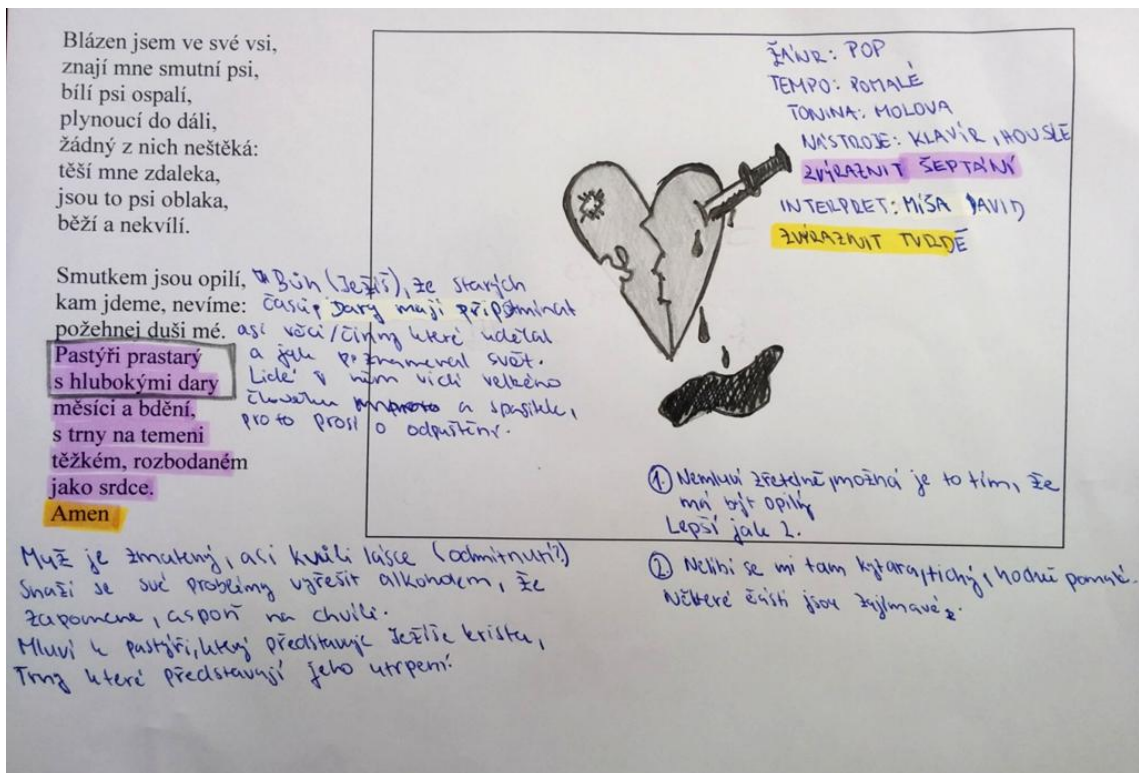 Blázen jsem ve své vsi,
znají mne smutní psi,
bílí psi ospalí,
plynoucí do dáli,
žádný z nich neštěká:
těší mne zdaleka,
jsou to psi oblaka,
běží a nekvílí.
Smutkem jsou opilí,
kam jdeme, nevíme:
požehnej duši mé.
Pastýři prastarý
s hlubokými dary
měsíci a bdění,
s trny na temeni
těžkém, rozbodaném
jako srdce.
Amen
Bůh (Ježíš), ze starých
časů, Dary mají připomínat
asi věci/činny které udělal
a jak poznamenal svět.
Lidé v něm vidí velkého
člověka a spasitele,
proto prosí o odpuštění.
ŽÁNR: POP
TEMPO: POMALÉ
TONINA: MOLOVA
NÁSTROJE: KLAVÍR, HOUSLE
ZVÝRAZNIT ŠEPTÁNÍ
INTERPRET: MÍŠA DAVID
ZVÝRAZNIT TVRDĚ
① Nemluví zřetelně, možná je to tím, že
má být opilý
Lepší jak 2.
② Nelíbí se mi tam kytara, tichý, hodně pomalé.
Některé části jsou zajímavé.
Muž je zmatený, asi kvůli lásce (odmítnutí?)
Snaží se své problémy vyřešit alkoholem, že
zapomene, aspoň na chvíli.
Mluví k pastýři, který představuje Ježíše krista,
Trny které představují jeho utrpení.